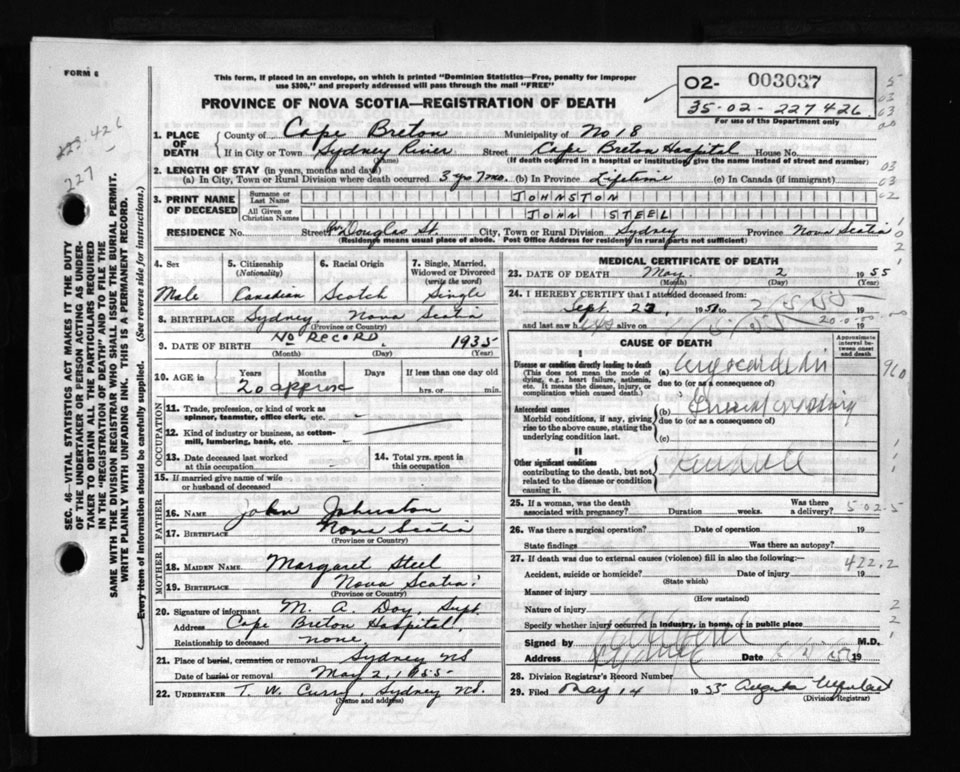 FORM 6
This form, if placed in an envelope, on which is printed "Dominion Statistics—Free, penalty for improper
use $300," and properly addressed will pass through the mail "FREE"
02- 003037
35-02-227426
For use of the Department only
PROVINCE OF NOVA SCOTIA—REGISTRATION OF DEATH
223.426
227
1. PLACE OF DEATH
County of Cape Breton Municipality of No 18
If in City or Town Sydney River Street Cape Breton Hospital House No.
(Name) (If death occurred in a hospital or institution, give the name instead of street and number)
2. LENGTH OF STAY (in years, months and days)
(a) In City, Town or Rural Division where death occurred 3 yrs 7 mo. (b) In Province Lifetime (c) In Canada (if immigrant)
3. PRINT NAME OF DECEASED
Surname or Last Name JOHNSTON
All Given or Christian Names JOHN STEEL
RESIDENCE No. Street Douglas St. City, Town or Rural Division Sydney Province Nova Scotia
(Residence means usual place of abode. Post Office Address for residents in rural parts not sufficient)
4. Sex
Male
5. Citizenship (Nationality)
Canadian
6. Racial Origin
Scotch
7. Single, Married, Widowed or Divorced (write the word)
Single
8. BIRTHPLACE Sydney, Nova Scotia
(Province or Country)
9. DATE OF BIRTH No RECORD. 1935
(Month) (Day) (Year)
10. AGE in Years Months Days If less than one day old
20 approx hrs. or min.
OCCUPATION
11. Trade, profession, or kind of work as spinner, teamster, office clerk, etc.
12. Kind of industry or business, as cotton-mill, lumbering, bank, etc.
13. Date deceased last worked at this occupation
14. Total yrs. spent in this occupation
15. If married give name of wife or husband of deceased
FATHER
16. NAME John Johnston
17. BIRTHPLACE Nova Scotia
(Province or Country)
MOTHER
18. MAIDEN NAME Margaret Steel
19. BIRTHPLACE Nova Scotia
(Province or Country)
20. Signature of informant M. A. Doy, Supt
Address Cape Breton Hospital,
Relationship to deceased none.
21. Place of burial, cremation or removal Sydney NS
Date of burial or removal May 2, 1955
22. UNDERTAKER T. W. Curry, Sydney NS.
(Name and address)
MEDICAL CERTIFICATE OF DEATH
23. DATE OF DEATH May 2 1955
(Month) (Day) (Year)
24. I HEREBY CERTIFY that I attended deceased from:
Sept. 1951
and last saw h alive on 19
CAUSE OF DEATH
Approximate interval between onset and death
I
Disease or condition directly leading to death
(This does not mean the mode of dying, e.g., heart failure, asthenia, etc. It means the disease, injury, or complication which caused death.)
(a)
due to (or as a consequence of)
Antecedent causes
Morbid conditions, if any, giving rise to the above cause, stating the underlying condition last.
(b)
due to (or as a consequence of)
(c)
II
Other significant conditions
contributing to the death, but not related to the disease or condition causing it.
25. If a woman, was the death associated with pregnancy? Duration weeks. Was there a delivery?
502.5
26. Was there a surgical operation? Date of operation 19
State findings Was there an autopsy?
27. If death was due to external causes (violence) fill in also the following:—
422.2
Accident, suicide or homicide? Date of injury 19
(State which)
Manner of injury
(How sustained)
Nature of injury
Specify whether injury occurred in industry, in home, or in public place
Signed by M.D.
Address Sydney Date 19
28. Division Registrar's Record Number
29. Filed May 14 1955
(Division Registrar)
SEC. 46—VITAL STATISTICS ACT MAKES IT THE DUTY
OF THE UNDERTAKER OR PERSON ACTING AS UNDER-
TAKER TO OBTAIN ALL THE PARTICULARS REQUIRED
IN THE "REGISTRATION OF DEATH" AND TO FILE THE
SAME WITH THE DIVISION REGISTRAR WHO SHALL ISSUE THE BURIAL PERMIT.
WRITE PLAINLY WITH UNFADING INK. THIS IS A PERMANENT RECORD.
Every item of information should be carefully supplied. (See reverse side for instructions.)